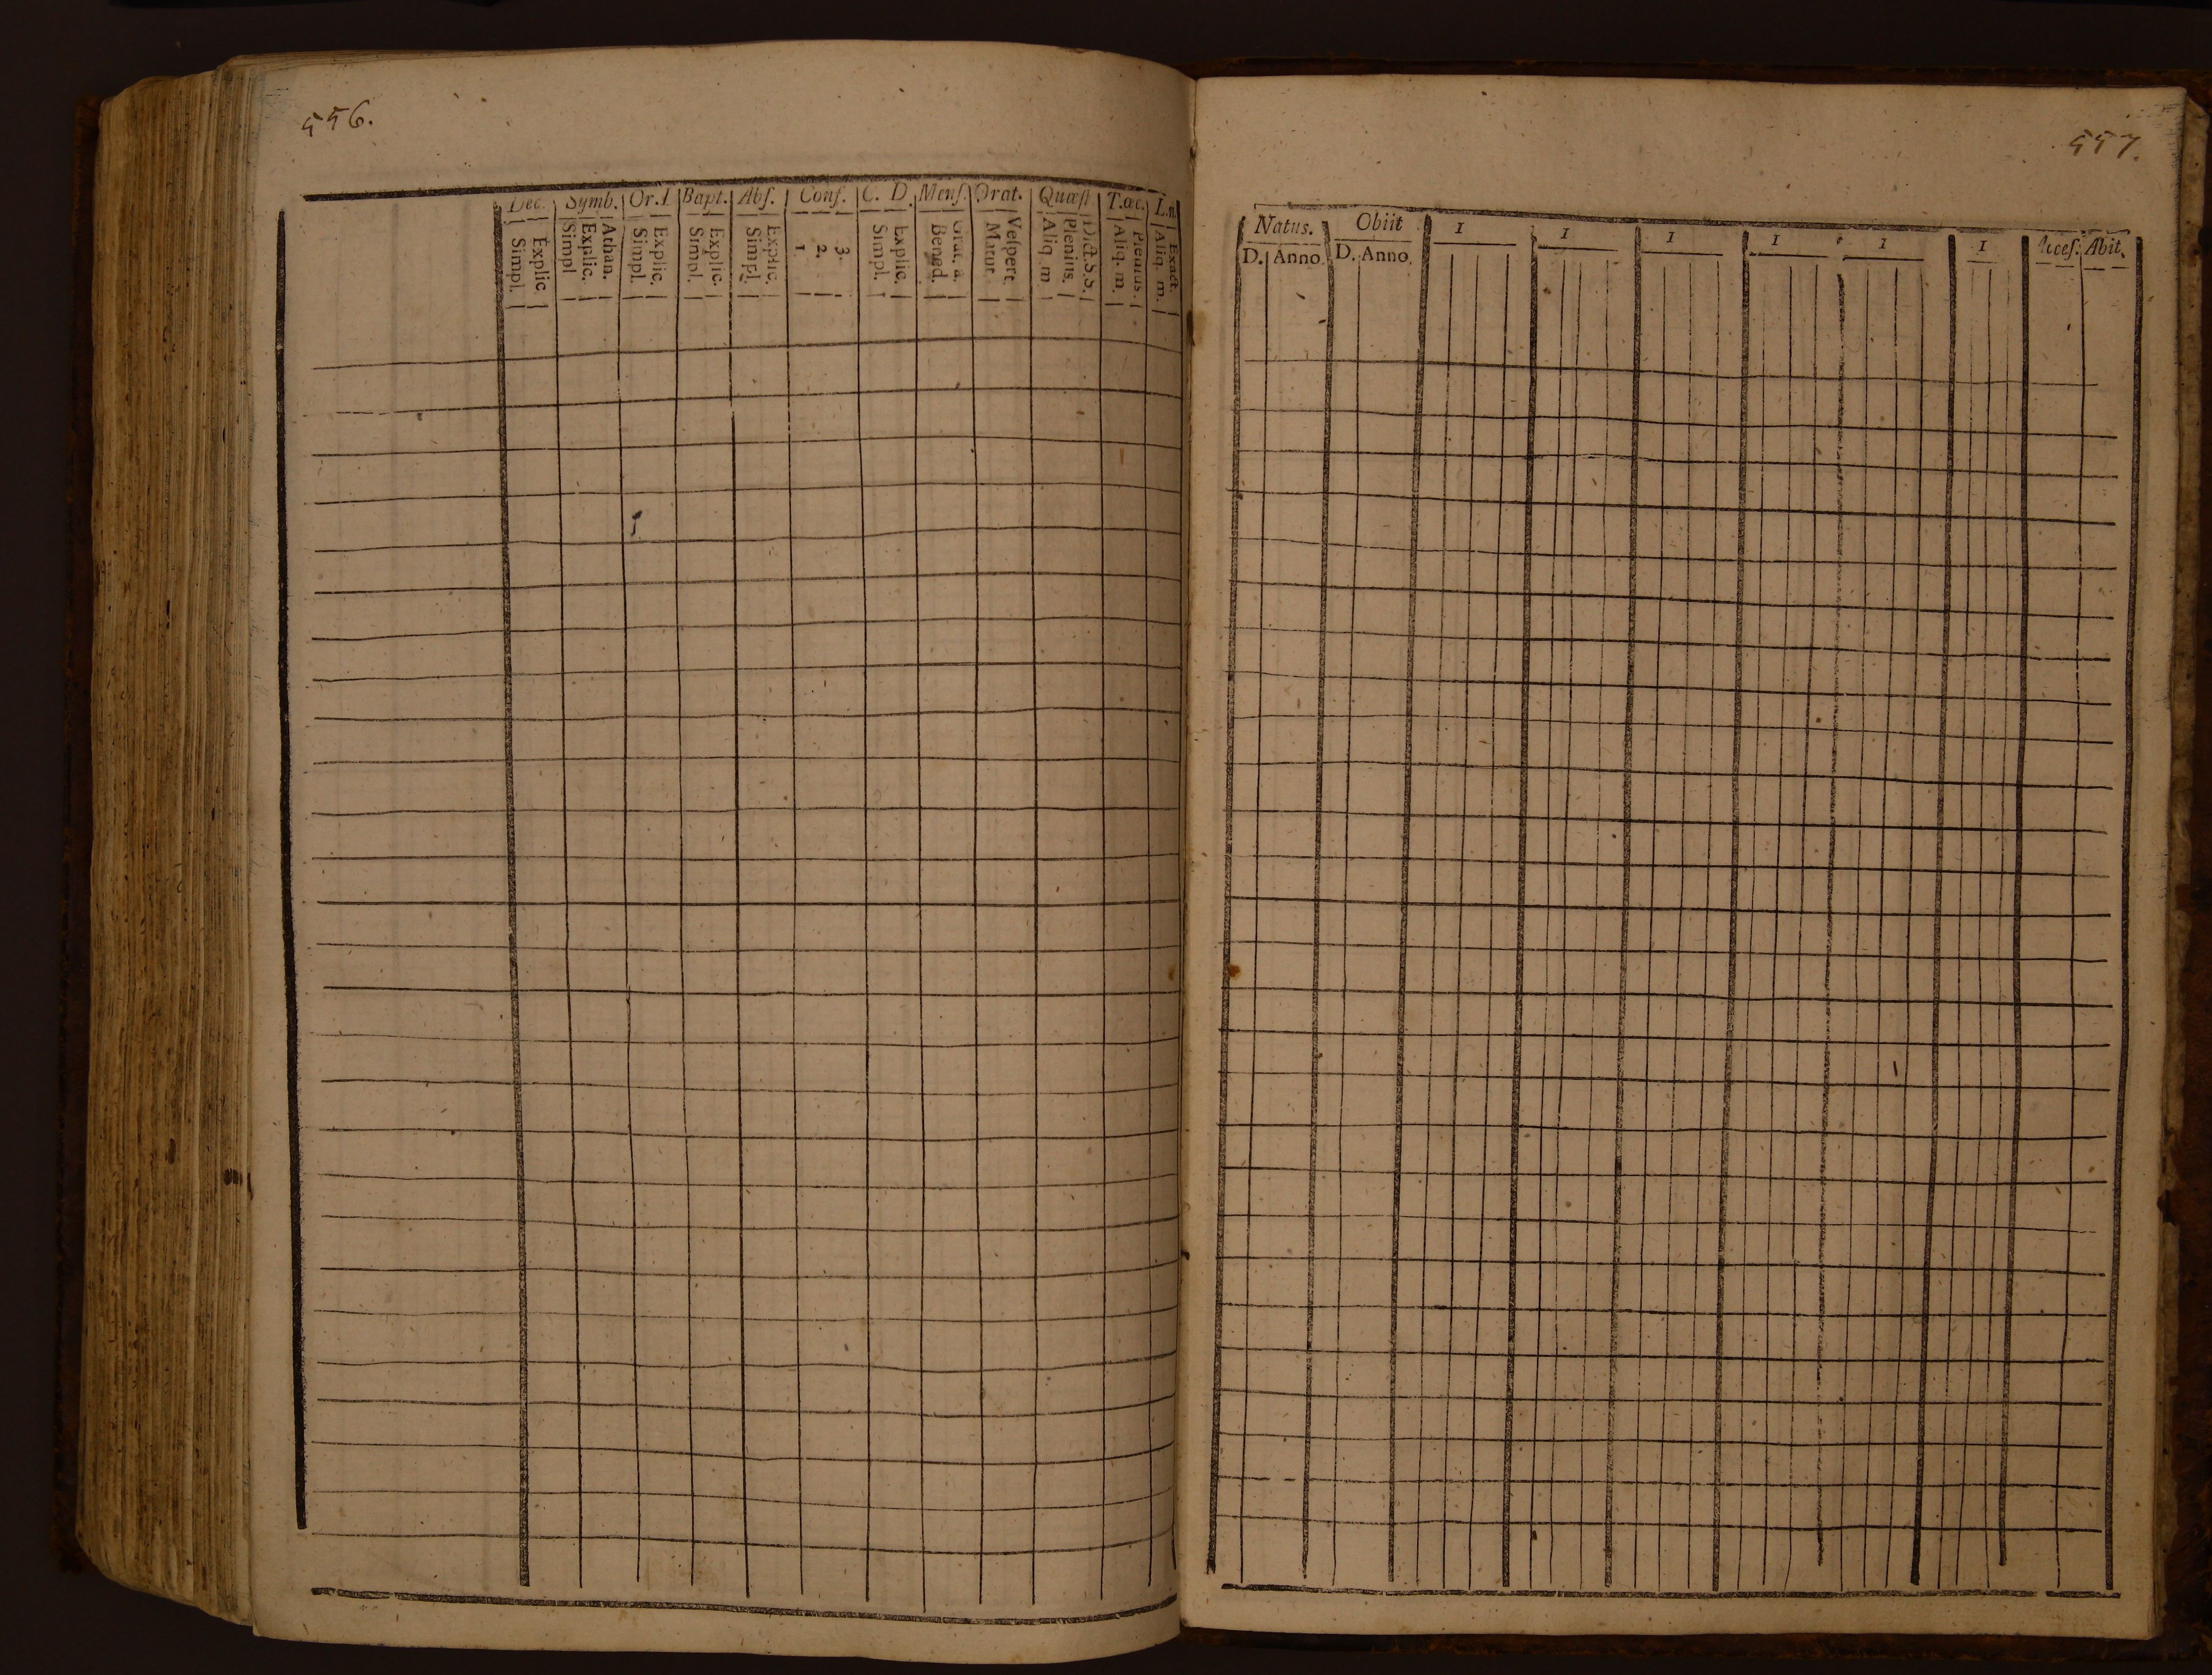 556.
Dec. Symb. Or. Bapt. Abſ. Conf. C. D. Menſ. Orat. Quæſt T.œc. L.n
Simpl. Explic. Simpl Explic. Athan. Simpl. Explic. Simpl. Explic. Simpl. Explic. 1 2. 3. Simpl. Explic. Bened. Matut. Veſpert. Aliq. m Plenius. Dict.S.S. Aliq. m. Plenius. Aliq. m. Exact.
557.
Natus. Obiit 1 1 1 1 1 1 Abit.
D. Anno. D. Anno